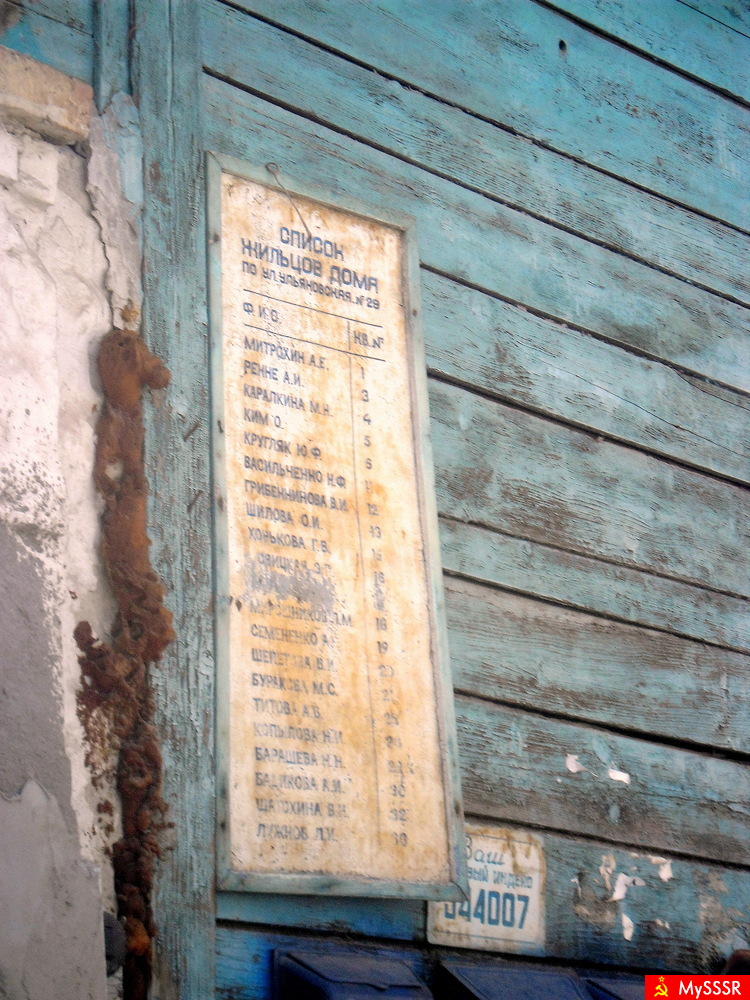 СПИСОК
ЖИЛЬЦОВ ДОМА
ПО УЛ.УЛЬЯНОВСКАЯ №29
Ф.И.О. КВ.№
МИТРОХИН А.Е. 1
РЕННЕ А.И. 3
КАРАЛКИНА М.Н. 4
КИМ О. 5
КРУГЛЯК Ю.Ф 6
ВАСИЛЬЧЕНКО Н.Ф
ГРИБЕННИКОВА В.И. 12
ШИЛОВА О.И. 13
ХОРЬКОВА Г.В.
СЕМЕНЕНКО 19
В.И. 20
БУРАКОВА М.С.
ТИТОВА А.В.
КОПЫЛОВА Н.И
БАРАШЕВА Н.Н.
БАДИКОВА А.И. 30
32
ЛУЖНОВ Л.И.
Ваш
ИНДЕКС
644007
MySSSR